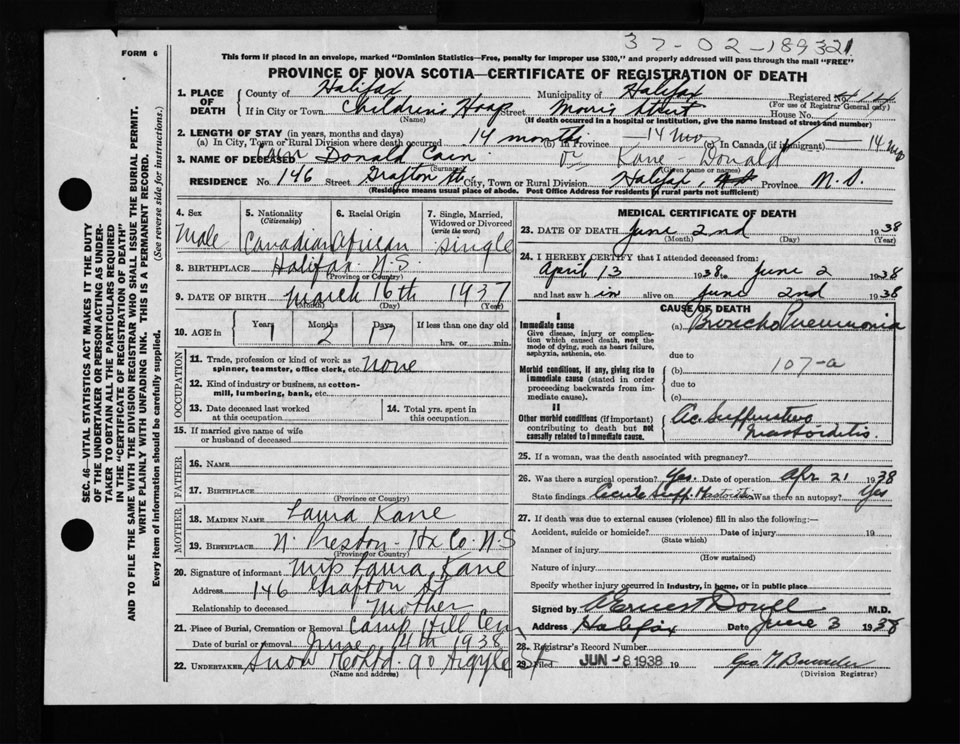 37-02-189321
FORM 6
This form if placed in an envelope, marked "Dominion Statistics—Free, penalty for improper use $300," and properly addressed will pass through the mail "FREE"
PROVINCE OF NOVA SCOTIA—CERTIFICATE OF REGISTRATION OF DEATH
SEC. 46—VITAL STATISTICS ACT MAKES IT THE DUTY
OF THE UNDERTAKER OR PERSON ACTING AS UNDER-
TAKER TO OBTAIN ALL THE PARTICULARS REQUIRED
IN THE "CERTIFICATE OF REGISTRATION OF DEATH"
AND TO FILE THE SAME WITH THE DIVISION REGISTRAR WHO SHALL ISSUE THE BURIAL PERMIT.
WRITE PLAINLY WITH UNFADING INK. THIS IS A PERMANENT RECORD.
Every item of information should be carefully supplied. (See reverse side for instructions.)
1. PLACE OF DEATH
County of Halifax Municipality of Halifax Registered No. 114
(For use of Registrar General only)
If in City or Town Children's Hosp Street Morris Street House No.
(Name) (If death occurred in a hospital or institution, give the name instead of street and number)
2. LENGTH OF STAY (in years, months and days)
(a) In City, Town or Rural Division where death occurred 14 months (b) In Province 14 mo (c) In Canada (if immigrant) — 14 mo
3. NAME OF DECEASED Cain Donald Cain or Kane - Donald
(Surname) (Given name or names)
RESIDENCE No. 146 Street Grafton St. City, Town or Rural Division Halifax Province N.S.
(Residence means usual place of abode. Post Office Address for residents in rural parts not sufficient)
4. Sex
Male
5. Nationality
(Citizenship)
Canadian
6. Racial Origin
African
7. Single, Married,
Widowed or Divorced
(write the word)
single
8. BIRTHPLACE Halifax N.S.
(Province or Country)
9. DATE OF BIRTH March 16th 1937
(Month) (Day) (Year)
10. AGE in Years Months Days If less than one day old
1 2 17 hrs. or min.
OCCUPATION
11. Trade, profession or kind of work as
spinner, teamster, office clerk, etc. none
12. Kind of industry or business, as cotton-
mill, lumbering, bank, etc.
13. Date deceased last worked
at this occupation
14. Total yrs. spent in
this occupation
15. If married give name of wife
or husband of deceased
FATHER
16. NAME
17. BIRTHPLACE
(Province or Country)
MOTHER
18. MAIDEN NAME Laura Kane
19. BIRTHPLACE N. Preston - Hx Co. N.S
(Province or Country)
20. Signature of informant Mrs Laura Kane
Address 146 Grafton St
Relationship to deceased Mother
21. Place of Burial, Cremation or Removal Camp Hill Cem
Date of burial or removal June 4th 1938
22. UNDERTAKER Snow & Co Ltd. 90 Argyle St
(Name and address)
MEDICAL CERTIFICATE OF DEATH
23. DATE OF DEATH June 2nd 1938
(Month) (Day) (Year)
24. I HEREBY CERTIFY that I attended deceased from:
April 13 1938, to June 2 1938
and last saw h im alive on June 2nd 1938
CAUSE OF DEATH
I
Immediate cause
Give disease, injury or complica-
tion which caused death, not the
mode of dying, such as heart failure,
asphyxia, asthenia, etc.
(a) Broncho Pneumonia
due to
Morbid conditions, if any, giving rise to
immediate cause (stated in order
proceeding backwards from im-
mediate cause).
(b) 107-a
due to
(c)
II
Other morbid conditions (if important)
contributing to death but not
causally related to immediate cause.
Ac Suppurative
Mastoiditis.
25. If a woman, was the death associated with pregnancy?
26. Was there a surgical operation? Yes. Date of operation Apr 21 1938
State findings Acute Supp. Mastoiditis Was there an autopsy? Yes
27. If death was due to external causes (violence) fill in also the following:—
Accident, suicide or homicide? Date of injury 19
(State which)
Manner of injury
(How sustained)
Nature of injury
Specify whether injury occurred in industry, in home, or in public place
Signed by Ernest Doull M.D.
Address Halifax Date June 3 1938
28. Registrar's Record Number
29. Filed JUN -8 1938 19
(Division Registrar)